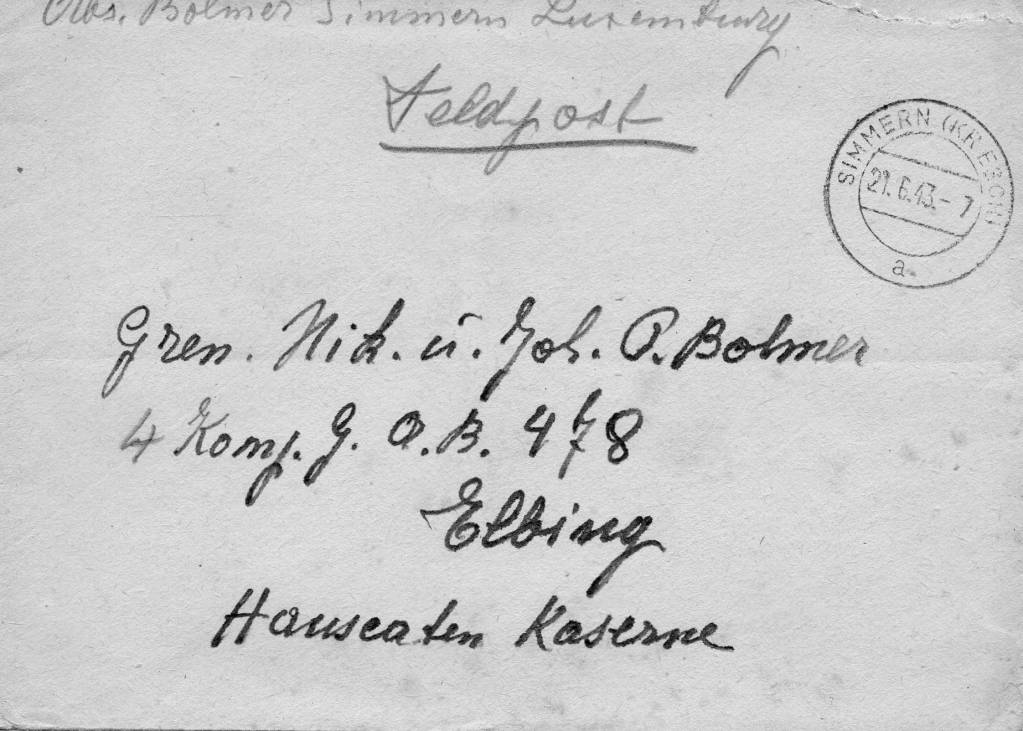 Abs. Bolmer Simmern Luxemburg
Feldpost
SIMMERN (KR ESCH)
21.6.43.- 7
a
Gren. Nik. u. Joh. P. Bolmer
4 Komp. G. A. B. 478
Elbing
Hanseaten Kaserne